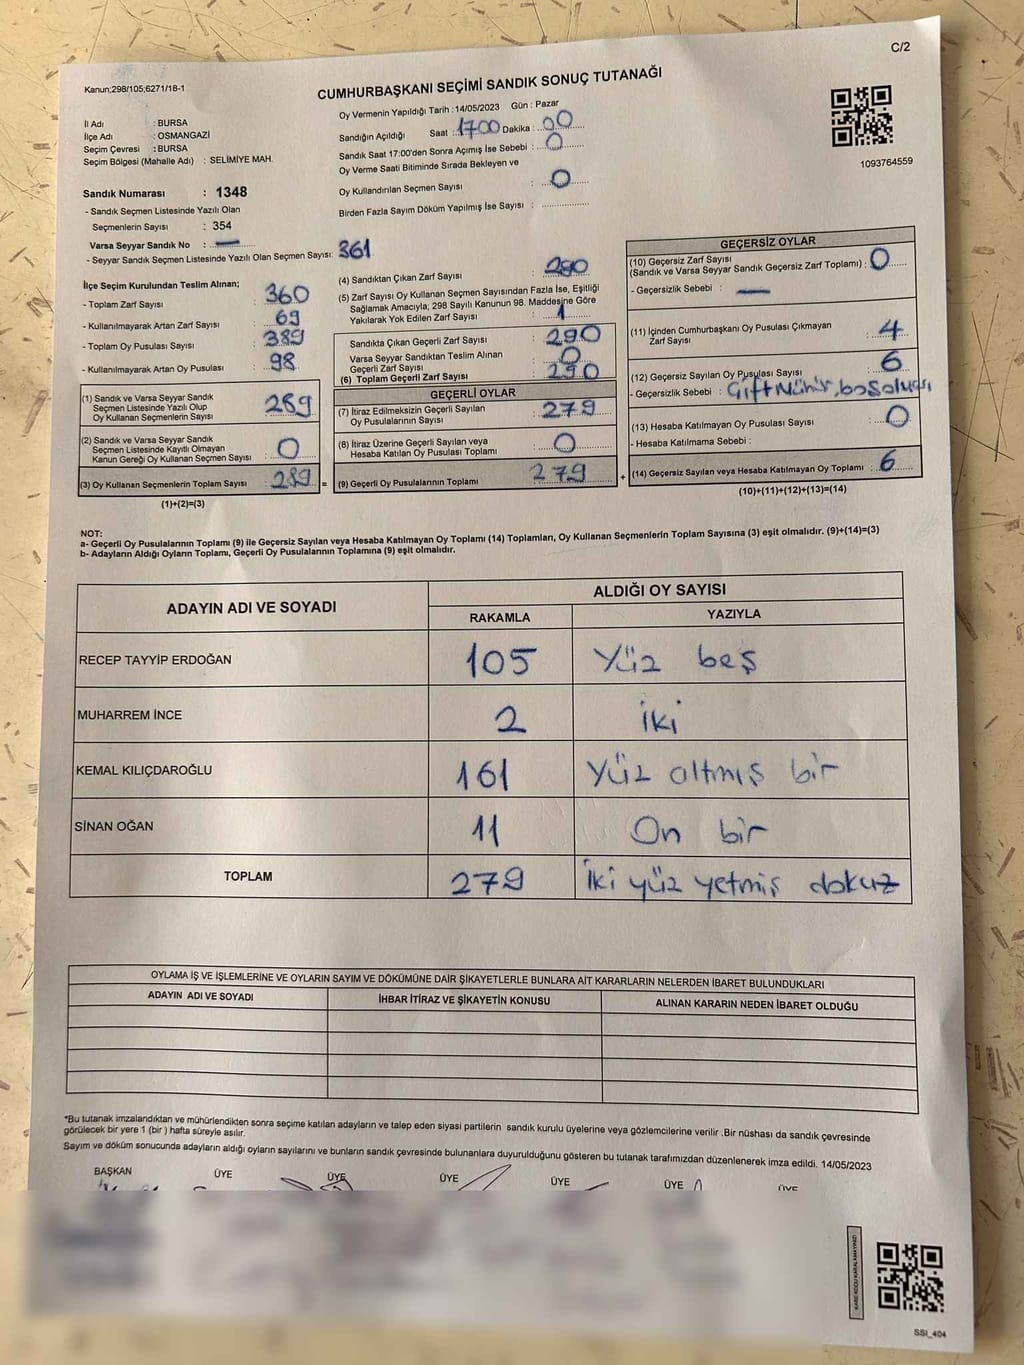 C/2
Kanun;298/105;6271/18-1
CUMHURBAŞKANI SEÇİMİ SANDIK SONUÇ TUTANAĞI
İl Adı : BURSA
İlçe Adı : OSMANGAZİ
Seçim Çevresi : BURSA
Seçim Bölgesi (Mahalle Adı) : SELİMİYE MAH.
Sandık Numarası : 1348
- Sandık Seçmen Listesinde Yazılı Olan
Seçmenlerin Sayısı : 354
Varsa Seyyar Sandık No : —
- Seyyar Sandık Seçmen Listesinde Yazılı Olan Seçmen Sayısı: 361
Oy Vermenin Yapıldığı Tarih : 14/05/2023 Gün : Pazar
Sandığın Açıldığı Saat : 1700 Dakika : 00
Sandık Saat 17:00'den Sonra Açımış İse Sebebi : 0
Oy Verme Saati Bitiminde Sırada Bekleyen ve
Oy Kullandırılan Seçmen Sayısı : 0
Birden Fazla Sayım Döküm Yapılmış İse Sayısı :
1093764559
İlçe Seçim Kurulundan Teslim Alınan;
- Toplam Zarf Sayısı : 360
- Kullanılmayarak Artan Zarf Sayısı : 69
- Toplam Oy Pusulası Sayısı : 389
- Kullanılmayarak Artan Oy Pusulası : 98
(1) Sandık ve Varsa Seyyar Sandık
Seçmen Listesinde Yazılı Olup
Oy Kullanan Seçmenlerin Sayısı : 289
(2) Sandık ve Varsa Seyyar Sandık
Seçmen Listesinde Kayıtlı Olmayan
Kanun Gereği Oy Kullanan Seçmen Sayısı : 0
(3) Oy Kullanan Seçmenlerin Toplam Sayısı : 289 =
(1)+(2)=(3)
(4) Sandıktan Çıkan Zarf Sayısı :
(5) Zarf Sayısı Oy Kullanan Seçmen Sayısından Fazla İse, Eşitliği
Sağlamak Amacıyla; 298 Sayılı Kanunun 98. Maddesine Göre
Yakılarak Yok Edilen Zarf Sayısı : 1
Sandıkta Çıkan Geçerli Zarf Sayısı : 290
Varsa Seyyar Sandıktan Teslim Alınan
Geçerli Zarf Sayısı : 0
(6) Toplam Geçerli Zarf Sayısı : 290
GEÇERLİ OYLAR
(7) İtiraz Edilmeksizin Geçerli Sayılan
Oy Pusulalarının Sayısı : 279
(8) İtiraz Üzerine Geçerli Sayılan veya
Hesaba Katılan Oy Pusulası Toplamı : 0
(9) Geçerli Oy Pusulalarının Toplamı : 279 +
GEÇERSİZ OYLAR
(10) Geçersiz Zarf Sayısı
(Sandık ve Varsa Seyyar Sandık Geçersiz Zarf Toplamı) : 0
- Geçersizlik Sebebi : —
(11) İçinden Cumhurbaşkanı Oy Pusulası Çıkmayan
Zarf Sayısı : 4
(12) Geçersiz Sayılan Oy Pusulası Sayısı : 6
- Geçersizlik Sebebi :
(13) Hesaba Katılmayan Oy Pusulası Sayısı : 0
- Hesaba Katılmama Sebebi :
(14) Geçersiz Sayılan veya Hesaba Katılmayan Oy Toplamı : 6
(10)+(11)+(12)+(13)=(14)
NOT:
a- Geçerli Oy Pusulalarının Toplamı (9) ile Geçersiz Sayılan veya Hesaba Katılmayan Oy Toplamı (14) Toplamları, Oy Kullanan Seçmenlerin Toplam Sayısına (3) eşit olmalıdır. (9)+(14)=(3)
b- Adayların Aldığı Oyların Toplamı, Geçerli Oy Pusulalarının Toplamına (9) eşit olmalıdır.
ADAYIN ADI VE SOYADI ALDIĞI OY SAYISI
RAKAMLA YAZIYLA
RECEP TAYYİP ERDOĞAN 105 Yüz beş
MUHARREM İNCE 2 iki
KEMAL KILIÇDAROĞLU 161 Yüz altmış bir
SİNAN OĞAN 11 On bir
TOPLAM 279 İki yüz yetmiş dokuz
OYLAMA İŞ VE İŞLEMLERİNE VE OYLARIN SAYIM VE DÖKÜMÜNE DAİR ŞİKAYETLERLE BUNLARA AİT KARARLARIN NELERDEN İBARET BULUNDUKLARI
ADAYIN ADI VE SOYADI İHBAR İTİRAZ VE ŞİKAYETİN KONUSU ALINAN KARARIN NEDEN İBARET OLDUĞU
*Bu tutanak imzalandıktan ve mühürlendikten sonra seçime katılan adayların ve talep eden siyasi partilerin sandık kurulu üyelerine veya gözlemcilerine verilir .Bir nüshası da sandık çevresinde
görülecek bir yere 1 (bir ) hafta süreyle asılır.
Sayım ve döküm sonucunda adayların aldığı oyların sayılarını ve bunların sandık çevresinde bulunanlara duyurulduğunu gösteren bu tutanak tarafımızdan düzenlenerek imza edildi. 14/05/2023
BAŞKAN ÜYE ÜYE ÜYE ÜYE ÜYE ÜYE
KARE KODU KARALAMAYINIZ!
SSI_404